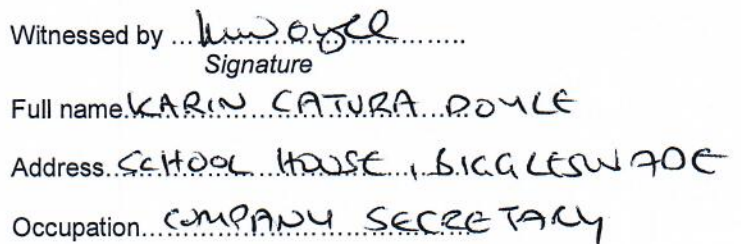 Witnessed by ................................
Signature
Full name KARIN CATURA DOYLE
Address SCHOOL HOUSE, BIGGLESWADE
Occupation COMPANY SECRETARY